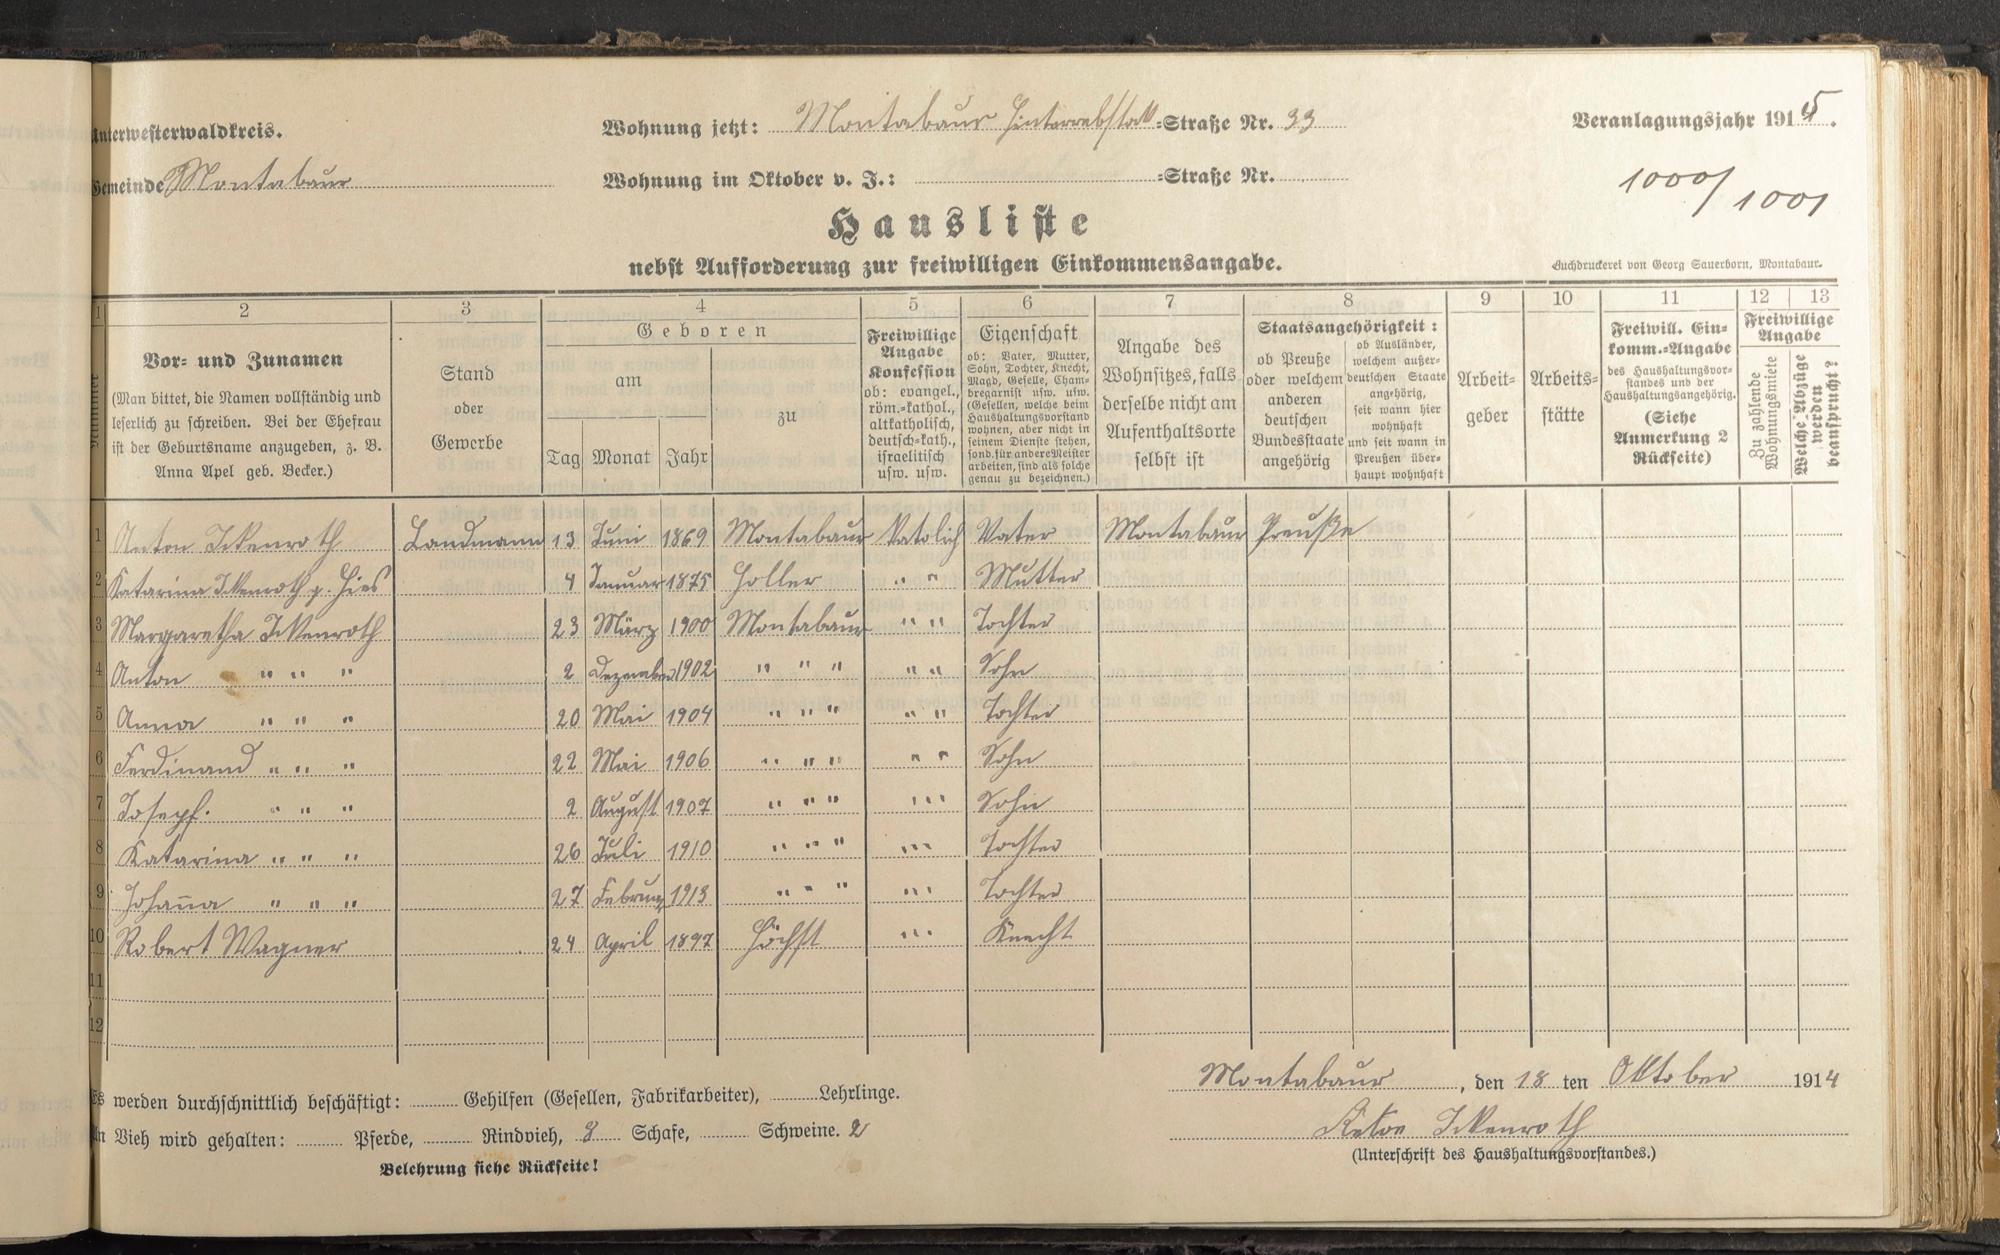 Unterwesterwaldkreis.
Wohnung jetzt: Montabaur Hinterrebstall=Straße Nr. 33
Veranlagungsjahr 1915.
Gemeinde Montabaur
Wohnung im Oktober v. J.: =Straße Nr.
1000/1001
Hausliste
nebst Aufforderung zur freiwilligen Einkommensangabe.
Buchdruckerei von Georg Sauerborn, Montabaur.
1 2 3 4 5 6 7 8 9 10 11 12 13
Nummer
Vor- und Zunamen
(Man bittet, die Namen vollständig und
leserlich zu schreiben. Bei der Ehefrau
ist der Geburtsname anzugeben, z. B.
Anna Apel geb. Becker.)
Stand
oder
Gewerbe
Geboren
am
Tag Monat Jahr
zu
Freiwillige
Angabe
Konfession
ob: evangel.,
röm.=kathol.,
altkatholisch,
deutsch=kath.,
israelitisch
usw. usw.
Eigenschaft
ob: Vater, Mutter,
Sohn, Tochter, Knecht,
Magd, Geselle, Cham=
bregarnist usw. usw.
(Gesellen, welche beim
Haushaltungsvorstand
wohnen, aber nicht in
seinem Dienste stehen,
sond. für andere Meister
arbeiten, sind als solche
genau zu bezeichnen.)
Angabe des
Wohnsitzes, falls
derselbe nicht am
Aufenthaltsorte
selbst ist
Staatsangehörigkeit:
ob Preuße
oder welchem
anderen
deutschen
Bundesstaate
angehörig
ob Ausländer,
welchem außer=
deutschen Staate
angehörig,
seit wann hier
wohnhaft
und seit wann in
Preußen über=
haupt wohnhaft
Arbeit=
geber
Arbeits=
stätte
Freiwill. Ein=
komm.=Angabe
des Haushaltungsvor=
standes und der
Haushaltungsangehörig.
(Siehe
Anmerkung 2
Rückseite)
Freiwillige
Angabe
Zu zahlende
Wohnungsmiete
Welche Abzüge
werden
beansprucht?
1 Anton Ickenroth Landmann 13 Juni 1869 Montabaur Katolich Vater Montabaur Preuße
2 Katarina Ickenroth g. Hies 4 Januar 1875 Holler " " Mutter
3 Margaretha Ickenroth 23 März 1900 Montabaur " " Tochter
4 Anton " " " 2 Dezember 1902 " " " " " Sohn
5 Anna " " " 20 Mai 1904 " " " " " Tochter
6 Ferdinand " " " 22 Mai 1906 " " " " " Sohn
7 Josepf. " " " 2 August 1907 " " " " " Sohn
8 Katarina " " " 26 Juli 1910 " " " " " Tochter
9 Johanna " " " 27 Februar 1913 " " " " " Tochter
10 Robert Wagner 24 April 1897 Höchst " " Knecht
11
12
Montabaur, den 18 ten Oktober 1914
Es werden durchschnittlich beschäftigt: Gehilfen (Gesellen, Fabrikarbeiter), Lehrlinge.
An Vieh wird gehalten: Pferde, Rindvieh, 8 Schafe, Schweine. 2
Ickenroth
(Unterschrift des Haushaltungsvorstandes.)
Belehrung siehe Rückseite!